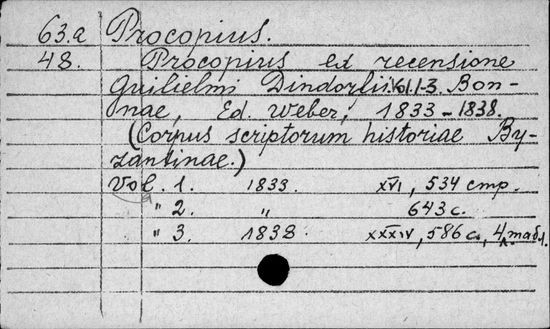 63.a Procopius.
48. Procopius ex recensione
Guilielmi Dindorfii. Vol. 1-3. Bon-
nae, Ed. Weber, 1833-1838.
(Corpus scriptorum historiae By-
zantinae.)
Vol. 1. 1833. XVI, 534 стр.
" 2. " 643 с.
" 3. 1838. XXXIV, 586 с., 4 табл.